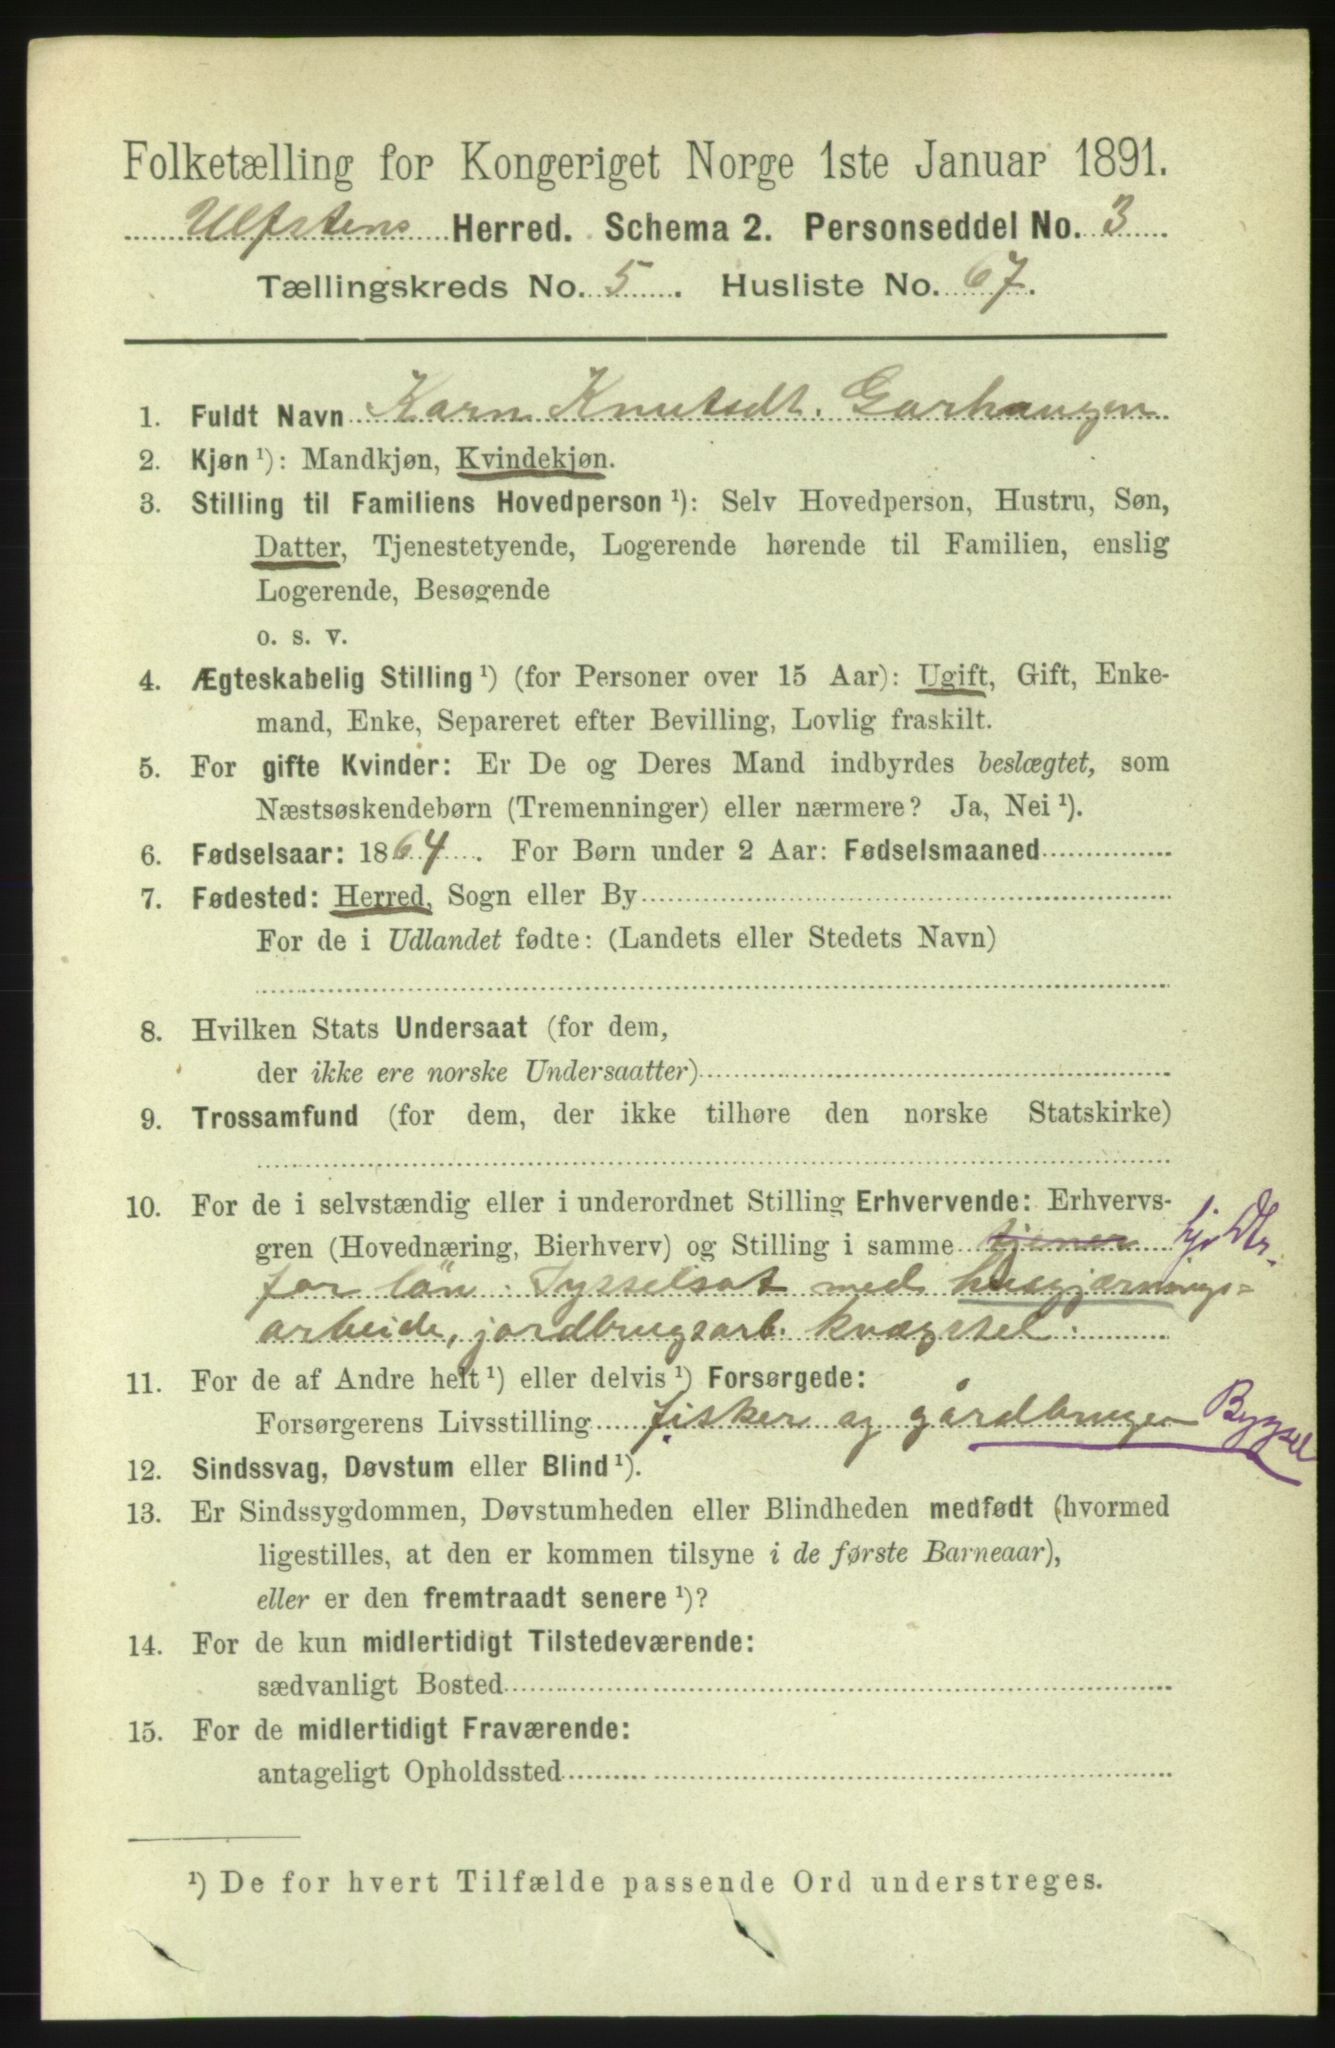 Folketælling for Kongeriget Norge 1ste Januar 1891.
Ulfstens Herred. Schema 2. Personseddel No. 3
Tællingskreds No. 5. Husliste No. 67.
1. Fuldt Navn Karn Knutsdt. Garhaugen
2. Kjøn ¹): Mandkjøn, Kvindekjøn.
3. Stilling til Familiens Hovedperson ¹): Selv Hovedperson, Hustru, Søn,
Datter, Tjenestetyende, Logerende hørende til Familien, enslig
Logerende, Besøgende
o. s. v.
4. Ægteskabelig Stilling ¹) (for Personer over 15 Aar): Ugift, Gift, Enke-
mand, Enke, Separeret efter Bevilling, Lovlig fraskilt.
5. For gifte Kvinder: Er De og Deres Mand indbyrdes beslægtet, som
Næstsøskendebørn (Tremenninger) eller nærmere? Ja, Nei ¹).
6. Fødselsaar: 1864. For Børn under 2 Aar: Fødselsmaaned
7. Fødested: Herred, Sogn eller By
For de i Udlandet fødte: (Landets eller Stedets Navn)
8. Hvilken Stats Undersaat (for dem,
der ikke ere norske Undersaatter)
9. Trossamfund (for dem, der ikke tilhøre den norske Statskirke)
10. For de i selvstændig eller i underordnet Stilling Erhvervende: Erhvervs-
gren (Hovednæring, Bierhverv) og Stilling i samme tjener hj. Dtr.
for løn. Sysselsat med husgjærnings-
arbeide, jordbrugsarb. kvægstel.
11. For de af Andre helt ¹) eller delvis ¹) Forsørgede:
Forsørgerens Livsstilling fisker og gårdbruger Bygsel
12. Sindssvag, Døvstum eller Blind ¹).
13. Er Sindssygdommen, Døvstumheden eller Blindheden medfødt (hvormed
ligestilles, at den er kommen tilsyne i de første Barneaar),
eller er den fremtraadt senere ¹)?
14. For de kun midlertidigt Tilstedeværende:
sædvanligt Bosted
15. For de midlertidigt Fraværende:
antageligt Opholdssted
¹) De for hvert Tilfælde passende Ord understreges.